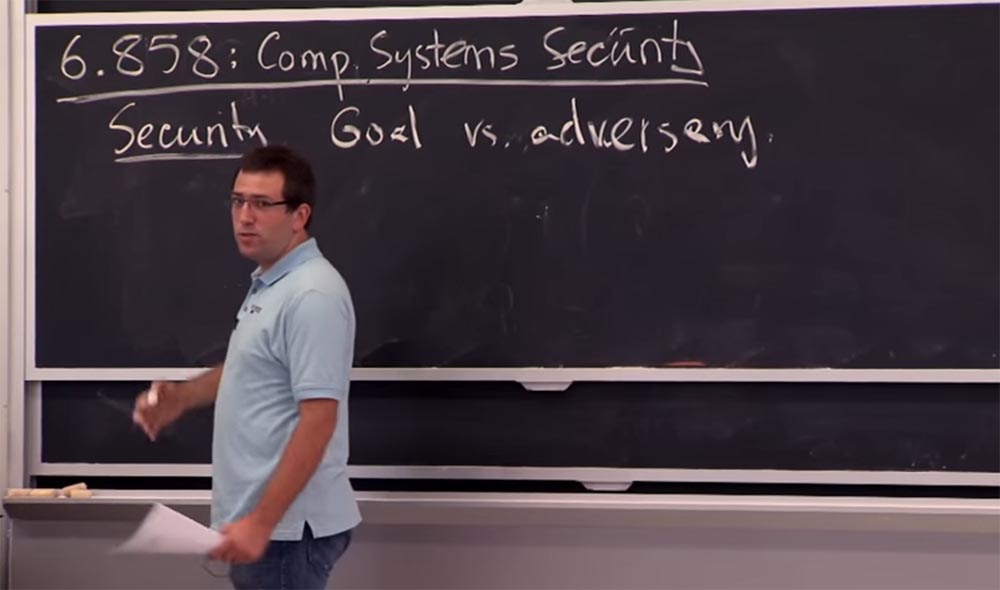 6.858: Comp. Systems Security
Security Goal vs. adversary.